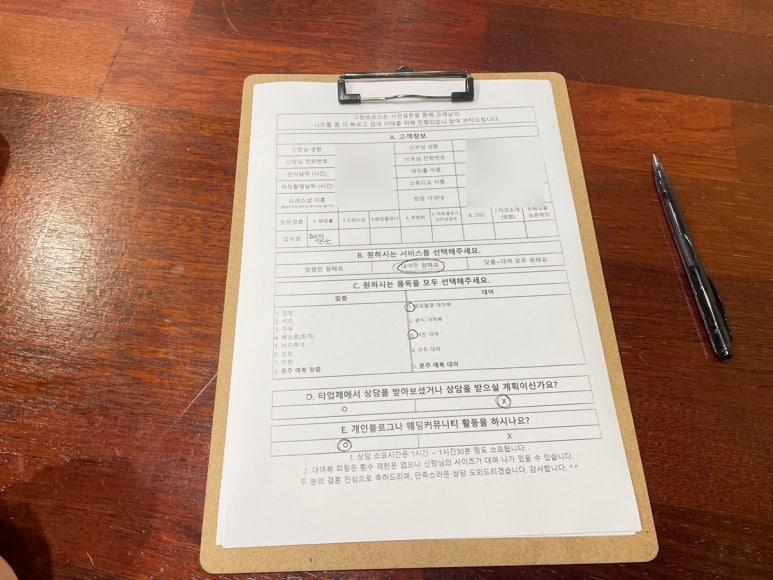 그랑브로스는 사전설문을 통해 고객님의
니즈를 좀 더 빠르고 깊게 이해를 위해 진행되오니 참여 부탁드립니다.
A. 고객정보
신랑님 성함 신부님 성함
신랑님 전화번호 신부님 전화번호
본식날짜 (시간) 웨딩홀 이름
웨딩촬영날짜 (시간) 스튜디오 이름
드레스샵 이름 희망 가격대
방문경로 1. 웨딩홀 2.드레스샵 3.웨딩플래너 4. 박람회 5. 카페,블로그 인터넷검색 6. SNS 7.지인소개 (성함)
업체명
B. 원하시는 서비스를 선택해주세요.
맞춤만 원해요 대여만 원해요 맞춤+대여 모두 원해요
C. 원하시는 품목을 모두 선택해주세요.
맞춤 대여
1. 정장 1. 웨딩촬영 대여복
2. 셔츠 2. 본식 대여복
3. 구두 3. 셔츠 대여
4. 베스트(조끼) 4. 구두 대여
5. 바지추가 5. 혼주 예복 대여
6. 코트
7. 자켓
8. 혼주 예복 맞춤
D. 타업체에서 상담을 받아보셨거나 상담을 받으실 계획이신가요?
O X
E. 개인블로그나 웨딩커뮤니티 활동을 하시나요?
O X
1. 상담 소요시간은 1시간 ~ 1시간30분 정도 소요됩니다.
2. 대여복 피팅은 횟수 제한은 없으나 신랑님의 사이즈가 대여 나가 있을 수 있습니다.
두 분의 결혼 진심으로 축하드리며, 만족스러운 상담 도와드리겠습니다. 감사합니다. ^^